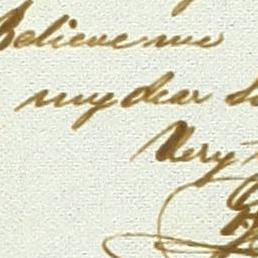 Believe me
my dear
Very